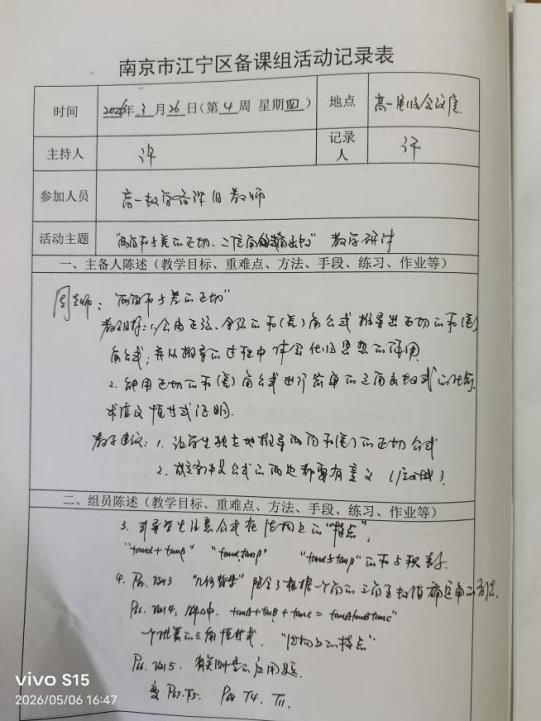 南京市江宁区备课组活动记录表
时间 2026年3月26日(第4周 星期四) 地点 高一会议室
主持人 许 记录人 许
参加人员 高一数学备课组教师
活动主题 "两角和与差的正切、二倍角的" 教学研讨
一、主备人陈述(教学目标、重难点、方法、手段、练习、作业等)
周老师:"两角和与差的正切"
教学目标:1.会由正弦、余弦的和(差)角公式推导出正切的和(差)
角公式,并从推导的过程中体会化归思想的作用
2.能用正切的和(差)角公式进行简单的三角函数式的化简、
求值及恒等式证明.
教学建议:1.让学生独立地推导两角和(差)的正切公式
2.公式的两边都要有意义(定义域)
二、组员陈述(教学目标、重难点、方法、手段、练习、作业等)
3.引导学生注意公式在结构上的"特点",
"tanα+tanβ" "tanαtanβ" "tanα与tanβ"的和与积
4. P61. 例3 根据一个角的三角函数值确定角的方法.
P61. 例4, tanA+tanB+tanC=tanAtanBtanC"
一个优美的三角恒等式."结构上的特点"
P62. 例5. 有关的应用题
T5. T4. T11.
vivo S15
2026/05/06 16:47